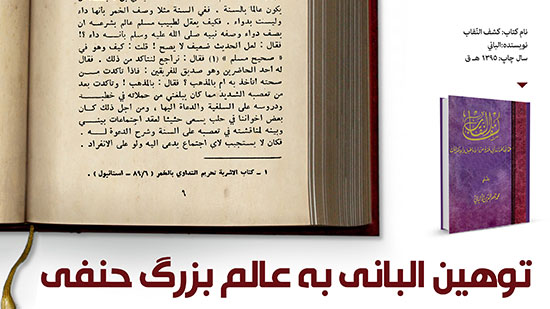 يكون عالما بالسنة . ففي السنة مثلا وصف الخمر بأنها داء
وليست بدواء . فكيف يعقل لطبيب مسلم عالم بشرعه ان
يصف دواء وصفه نبيه صلى الله عليه وسلم بأنه داء ؟!
فقال : لعل الحديث ضعيف لا يصح ! قلت : كيف وهو في
« صحيح مسلم » (١) فقال : نراجع لنتأكد من ذلك . فقال
له احد الحاضرين وهو صديق للفريقين : فاذا تأكدت من
صحته أتأخذ به ام بالمذهب ؟ فقال : بالمذهب ! وتأكدت
من تعصبه الشديد مما كان يبلغني من حملاته في خطبه
ودروسه على السلفية والدعاة اليها . ومن اجل ذلك كان
بعض اخواننا في حلب يسعى حثيثا لعقد اجتماعات بيني
وبينه لمناقشته في تعصبه على السنة وشرح الدعوة له .
فكان لا يستجيب لاي اجتماع يدعى اليه ولو على الانفراد .
١ – كتاب الاشربة تحريم التداوي بالخمر (٨٩/٦ – استانبول) .
٦
نام کتاب: کشف النّقاب
نویسنده:البانی
سال چاپ: ۱۳۹۵ هـ ق
كشف النقاب
توهین البانی به عالم بزرگ حنفی